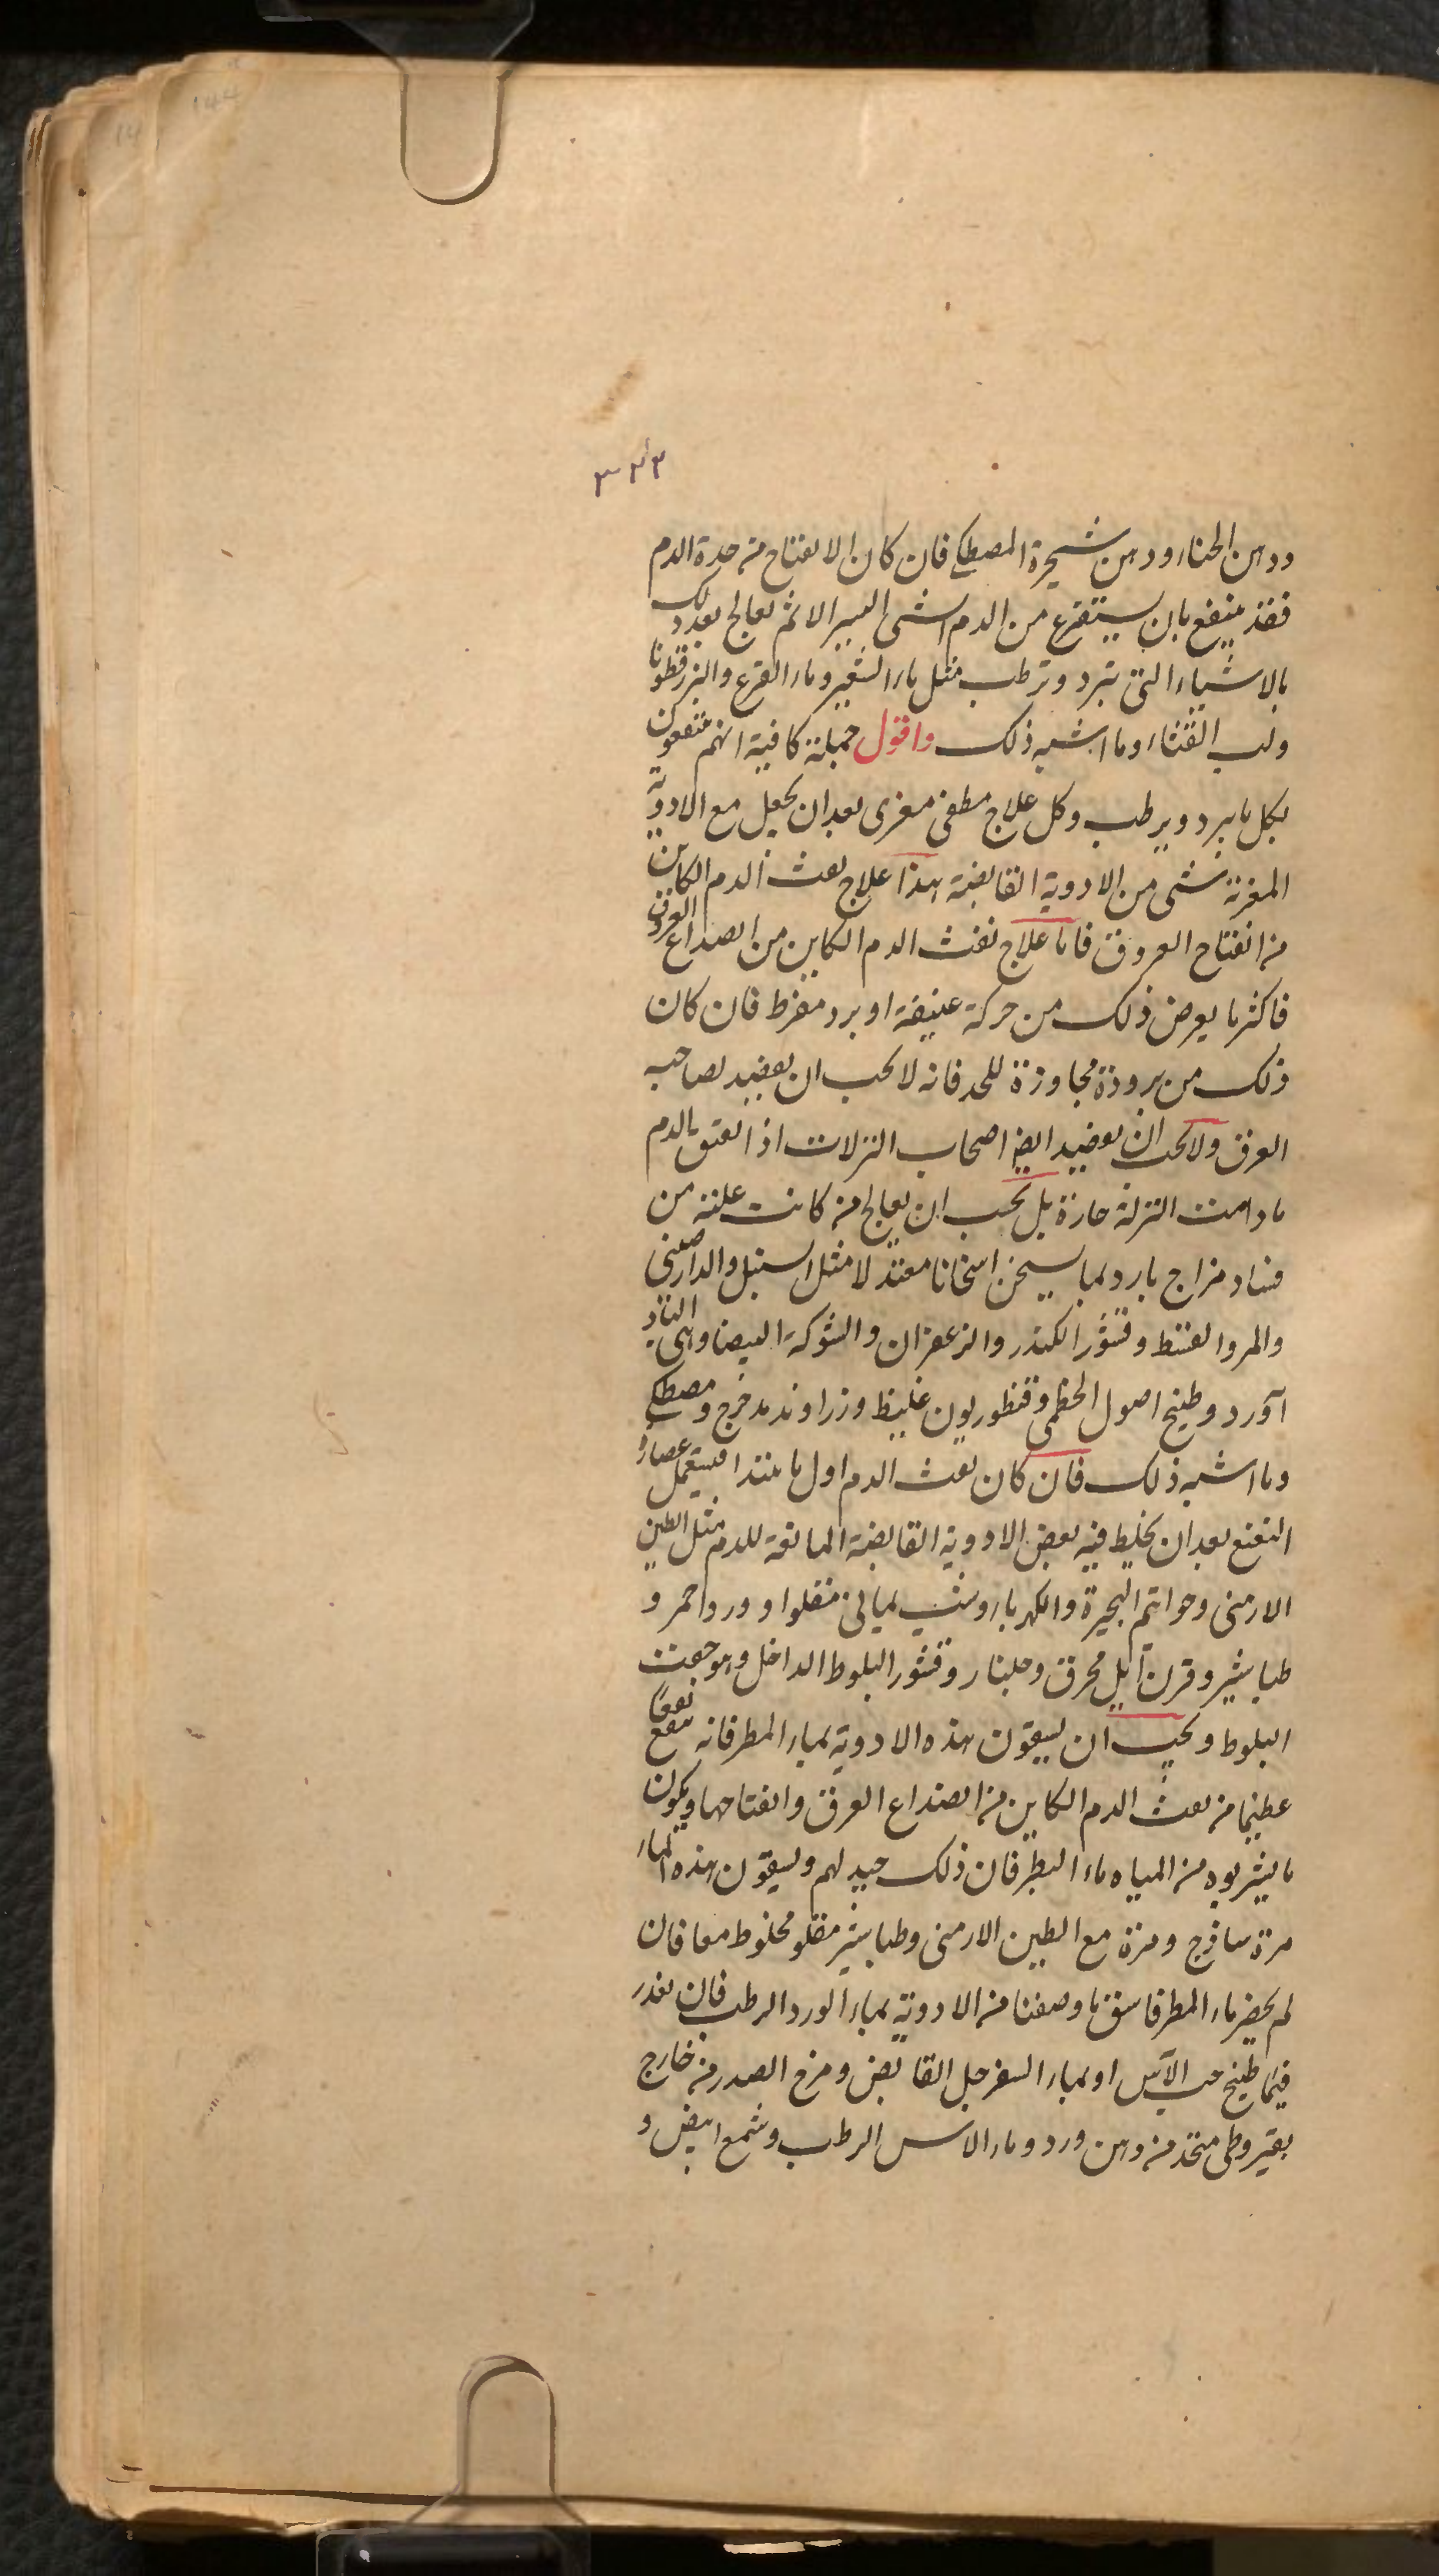 ٣٢٣
ودهن الحناء ودهن شجرة المصطكى فان كان الانفتاح من حدة الدم
فقد ينتفع بان يستفرغ من الدم الشئ اليسير الا ثم يعالج بعد ذلك
بالاشياء التى تبرد وترطب مثل ماء الشعير وماء القرع والبزرقطونا
ولب القثاء وما اشبه ذلك واقول جملة كافية انهم ينتفعون
بكل ما يبرد ويرطب وكل علاج مطفى مغرى بعد ان يجعل مع الادوية
المغرية شئ من الادوية القابضة هذا علاج نفث الدم الكائن
من انفتاح العروق فاما علاج نفث الدم الكاين من انصداع العروق
فاكثر ما يعرض ذلك من حركة عنيفة او برد مفرط فان كان
ذلك من برودة مجاوزة للحد فانه لا يجب ان يفصد لصاحبه
العرق ولا يجب ان يفصد ايضا اصحاب النزلات اذا بالدم
ما دامت النزلة حارة بل يجب ان يعالج من كانت علته من
فساد مزاج بارد بما يسخن اسخانا معتدلا مثل السنبل والدارصينى
والمر والقسط وقشور الكندر والزعفران والشوكة البيضا وهى الباد
آورد وطبيخ اصول الخطمى وقنطوريون غليظ وزراوند مدحرج ومصطكى
وما اشبه ذلك فان كان نفث الدم اول ما يبتدا فيستعمل عصارة
النعنع بعد ان يخلط فيه بعض الادوية القابضة المانعة للدم مثل الطين
الارمنى وخواتيم البحيرة والكهربا وشب يمانى مقلوا وورد احمر و
طباشير وقرن ايل محرق وجلنار وقشور البلوط الداخل وهو جفت
البلوط ويجب ان يسقون هذه الادوية بماء المطر فانه ينفع نفعا
عظيما من نفث الدم الكاين من انصداع العرق وانفتاحها ويكون
ما يشربوه من المياه ماء المطر فان ذلك جيد لهم ويسقون هذه الماء
مرة ساذج ومرة مع الطين الارمنى وطباشير مقلو مخلوط معا فان
لم يحضر ماء المطر فاسق ما وصفنا من الادوية بماء الورد الرطب فان تعذر
فبماء طبيخ حب الآس او بماء السفرجل القابض ومرخ الصدر من خارج
بقيروطى متخذ من دهن ورد وماء الاس الرطب وشمع ابيض و